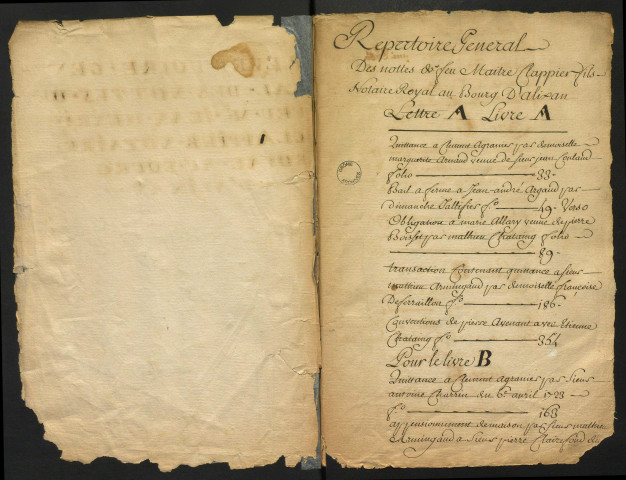 Repertoire General
Des nottes de feu Maitre Clappier fils
Notaire Royal au Bourg D'alixan
Lettre A Livre A
Quittance a Clement Agrames par demoiselle
marguerite Armand veuve de sieur jean
folio 33
Bail a ferme a Jean-andré Argaud par
Dimanche fo 49 Verso
Obligation a marie Allary veuve de pierre
Boisset par mathieu Chataing folio
89
transaction Contenant quittance a sieur
mathieu Armingaud par demoiselle françoise
Deferraillon fo 186
Conventions de pierre Avenant avec Etienne
Chataing fo 354
Pour le livre B
Quittance a Clement Agrames par sieur
antoine Charrin du 6e avril 1723
fo 163
appensionnement de maison par sieur mathieu
Armingaud a sieur pierre